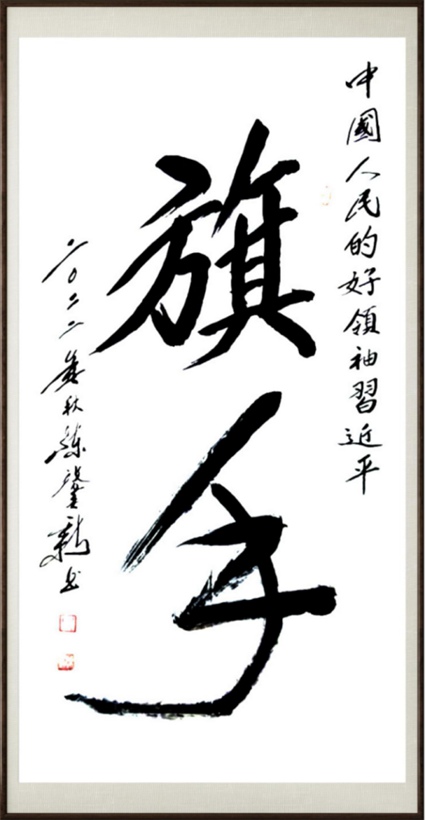 中國人民的好領袖習近平
旗手
二〇二二年秋練肇新书